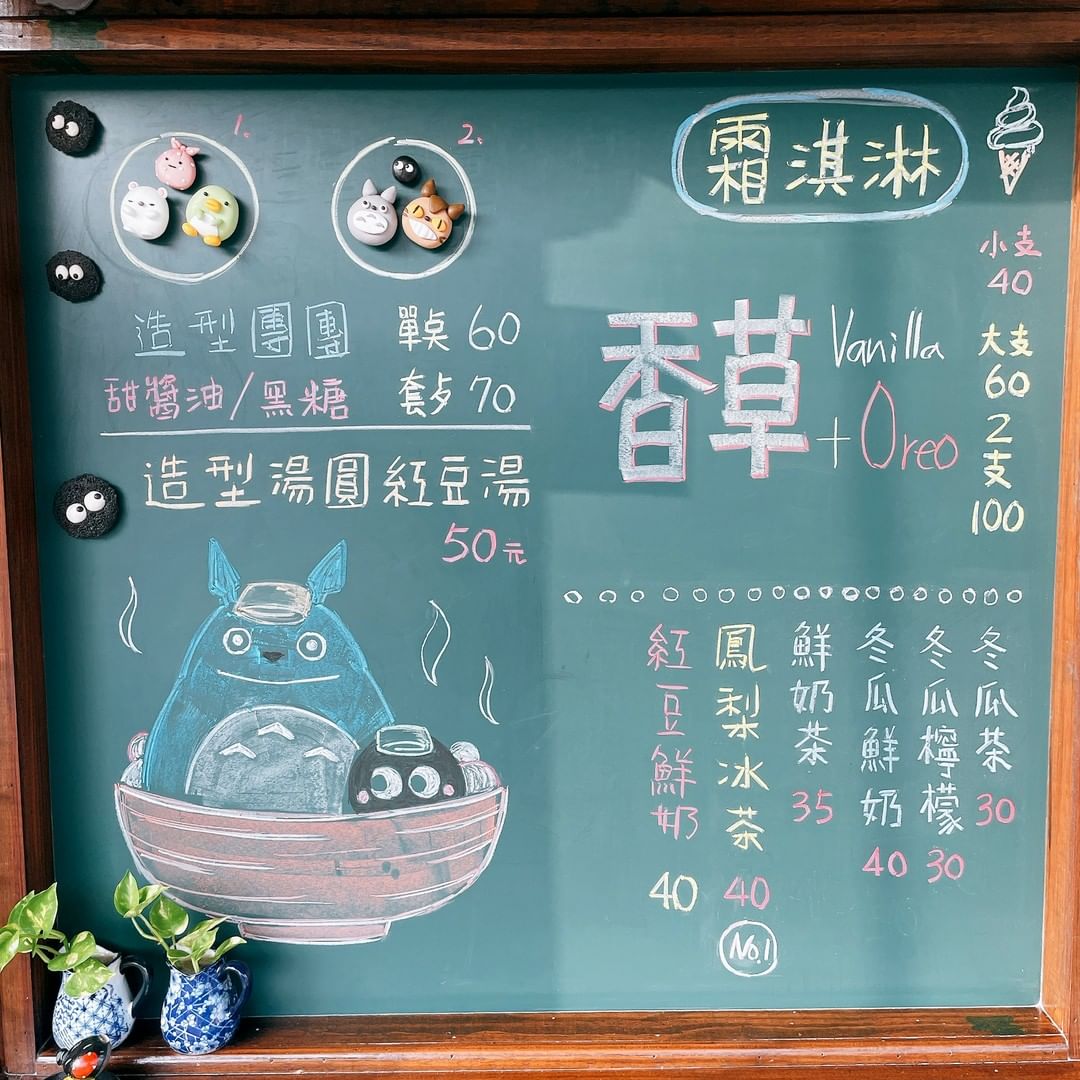 1、
2、
造型團團 單桌 60
甜醬油/黑糖 70
造型湯圓紅豆湯
50元
霜淇淋
小支
40
大支
60
2
支
100
香草 Vanilla
+ Oreo
冬瓜茶 30
冬瓜檸檬 30
冬瓜鮮奶 40
鮮奶茶 35
鳳梨冰茶 40
No.1
紅豆鮮奶 40